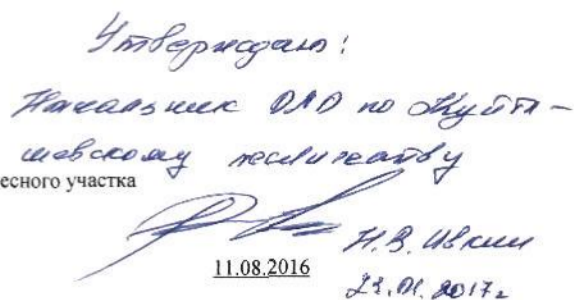 Утверждаю:
Начальник ОЛО по Куйбы-
шевскому лесничеству
есного участка
Н.В. Ивкин
11.08.2016
23.01.2017г